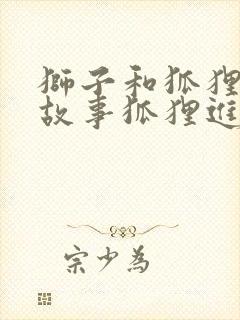 獅子和狐狸
故事狐狸進
宗少為